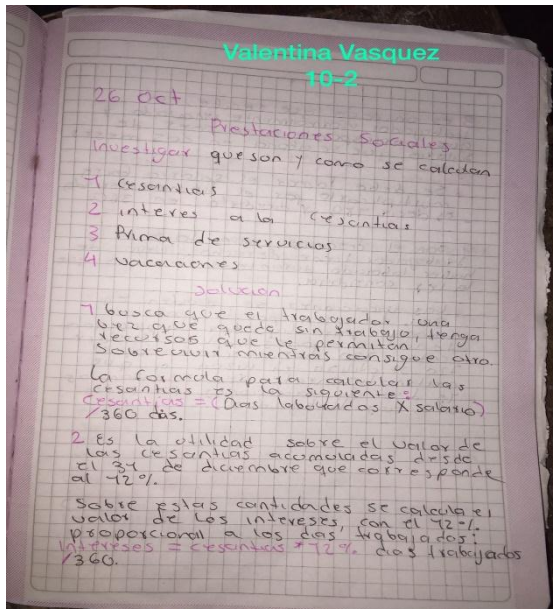 Valentina Vasquez
10-2
26 oct
Prestaciones Sociales
Investigar que son y como se calculan
1 cesantias
2 interes a la cescintias
3 Prima de servicios
4 vacaciones
solucion
1 busca que el trabajador una
bez que quede sin trabajo, tenga
recursos que le permitan
sobrevivir mientras consigue otro.
La formula para calcular las
cesantias es la siguiente:
Cesantias = (Dias laborados X salario)
/360 dias.
2 Es la utilidad sobre el valor de
las cesantias acomuladas desde
el 31 de diciembre que corresponde
al 12%.
Sobre estas cantidades se calcula el
valor de los intereses, con el 12%.
proporcional a los dias trabajados:
Intereses = cesantias * 12% dias trabajados
/360.